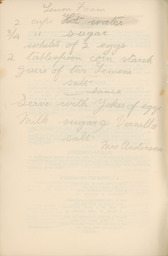 Lemon Foam
2 cups Hot water
3/4 " sugar
white of 2 eggs
2 tablespoon corn starch
Juice of two Lemons
salt
Sauce
Serve with Yokes of eggs
Milk sugar & Vanilla
salt
Mrs Anderson